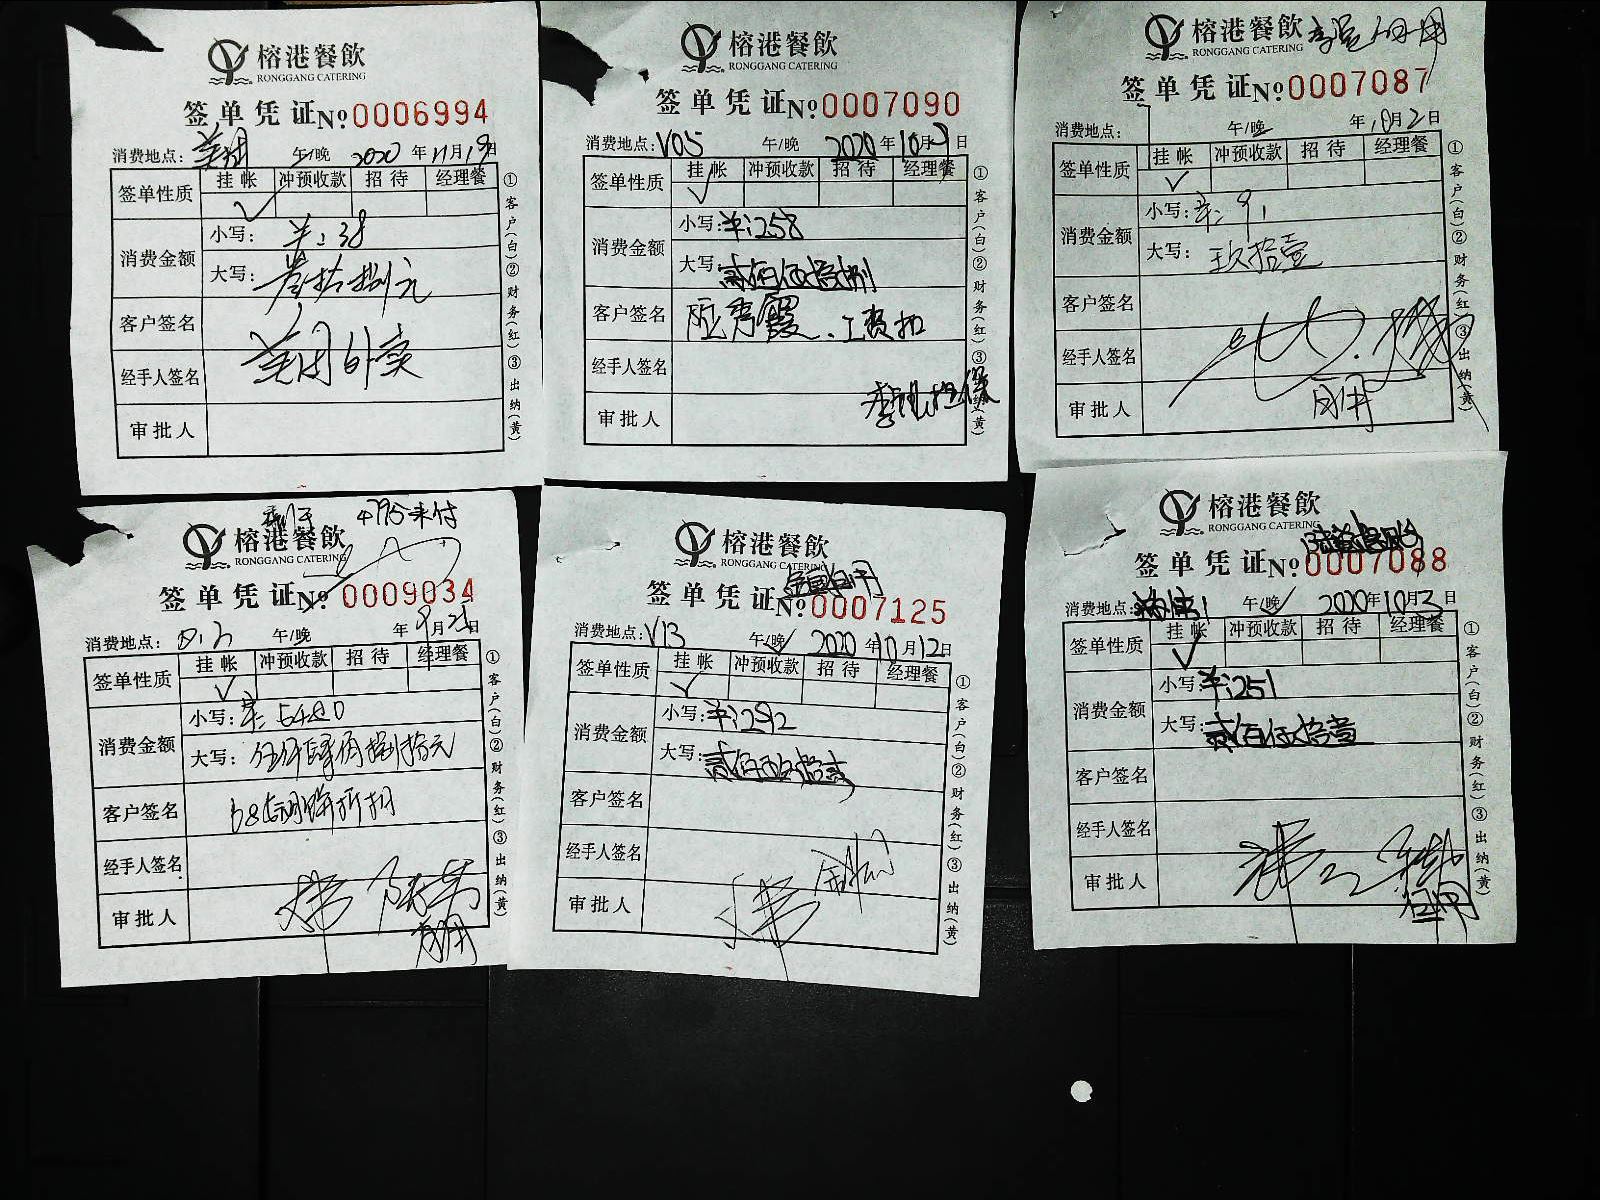 榕港餐飲
RONGGANG CATERING
签单凭证 No 0006994
消费地点: 午/晚 2020 年 11 月 19 日
签单性质 挂帐 冲预收款 招待 经理餐
✓
消费金额
小写: 羊: 38
大写: 叁拾捌元
客户签名
经手人签名 美团外卖
审批人
①客户(白)②财务(红)③出纳(黄)
榕港餐飲
RONGGANG CATERING
签单凭证 No 0007090
消费地点: V05 午/晚 2020 年 10 月 日
签单性质 挂帐 冲预收款 招待 经理餐
✓
消费金额
小写: 羊: 258
大写: 贰佰伍拾捌
客户签名 秀霞、工资扣
经手人签名
审批人
①客户(白)②财务(红)③出纳(黄)
榕港餐飲
RONGGANG CATERING
签单凭证 No 0007087
消费地点: 午/晚 年 10 月 2 日
签单性质 挂帐 冲预收款 招待 经理餐
✓
消费金额
小写: 羊: 91
大写: 玖拾壹
客户签名
经手人签名
审批人
①客户(白)②财务(红)③出纳(黄)
4795未付
榕港餐飲
RONGGANG CATERING
签单凭证 No 0009034
消费地点: 午/晚 年 9 月 日
签单性质 挂帐 冲预收款 招待 经理餐
✓
消费金额
小写: 羊: 5480
大写: 伍仟肆佰捌拾元
客户签名
经手人签名
审批人
①客户(白)②财务(红)③出纳(黄)
榕港餐飲
RONGGANG CATERING
签单凭证 No 0007125
消费地点: V13 午/晚 ✓ 2020 年 10 月 12 日
签单性质 挂帐 冲预收款 招待 经理餐
✓
消费金额
小写: 羊: 292
大写: 贰佰玖拾贰
客户签名
经手人签名
审批人
①客户(白)②财务(红)③出纳(黄)
榕港餐飲
RONGGANG CATERING
签单凭证 No 0007088
消费地点: 午/晚 ✓ 2020 年 10 月 3 日
签单性质 挂帐 冲预收款 招待 经理餐
✓
消费金额
小写: 羊: 251
大写: 贰佰伍拾壹
客户签名
经手人签名
审批人
①客户(白)②财务(红)③出纳(黄)